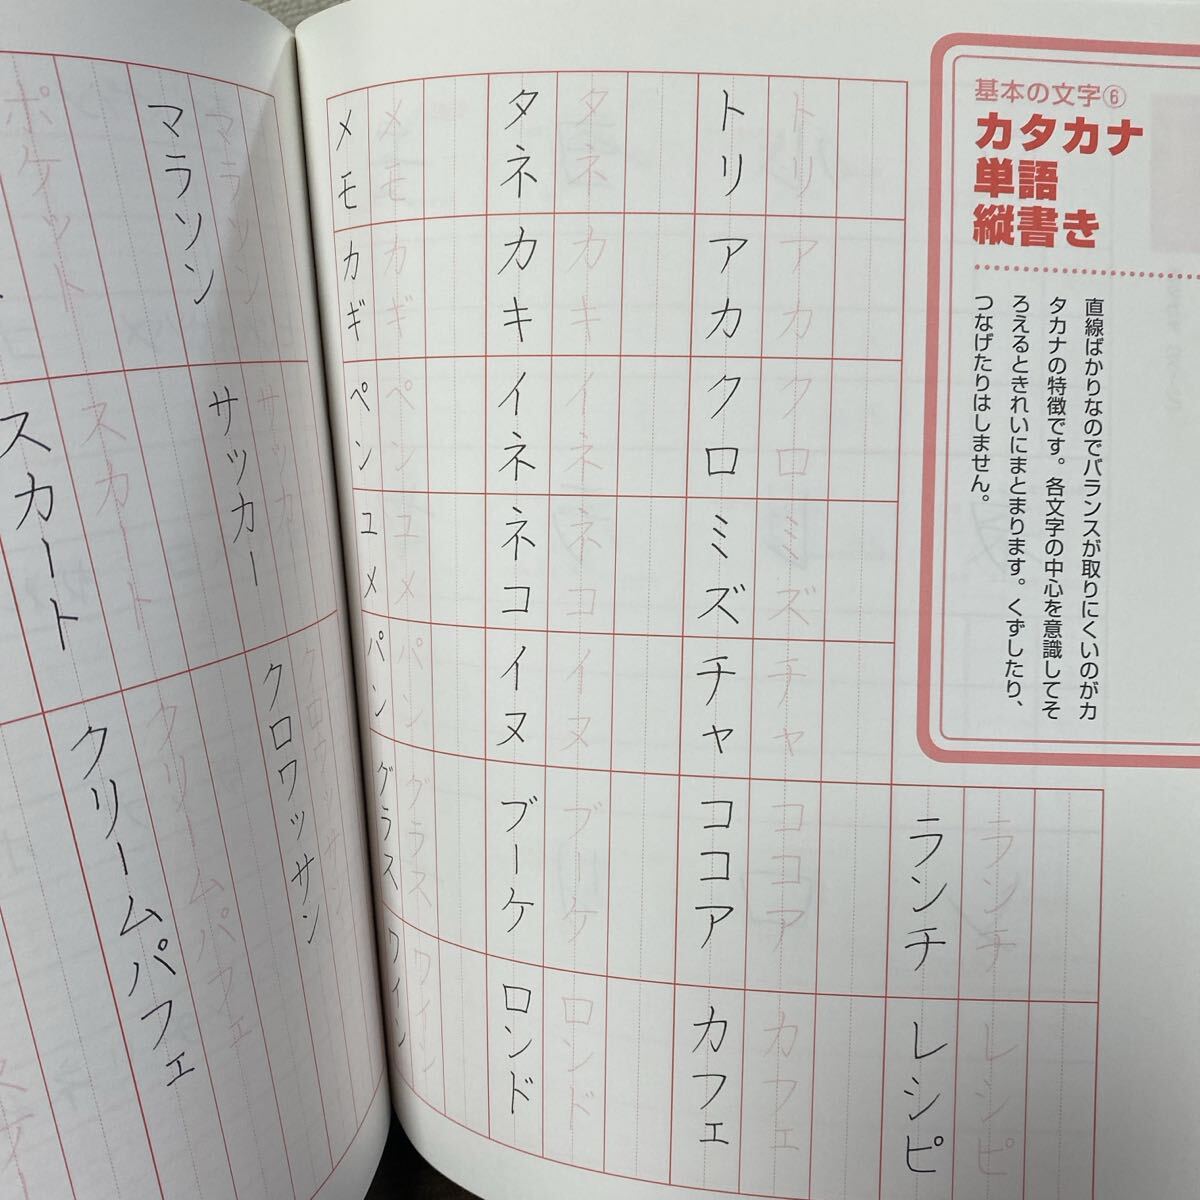 基本の文字⑥
カタカナ
単語
縦書き
直線ばかりなのでバランスが取りにくいのがカ
タカナの特徴です。各文字の中心を意識してそ
ろえるときれいにまとまります。くずしたり、
つなげたりはしません。
ランチ
ランチ
レシピ
レシピ
トリ
トリ
アカ
アカ
クロ
クロ
ミズ
ミズ
チャ
チャ
ココア
ココア
カフェ
カフェ
タネ
タネ
カキ
カキ
イネ
イネ
ネコ
ネコ
イヌ
イヌ
ブーケ
ブーケ
ロンド
ロンド
メモ
メモ
カギ
カギ
ペン
ペン
ユメ
ユメ
パン
パン
グラス
グラス
ワイン
ワイン
マラソン
マラソン
サッカー
サッカー
クロワッサン
クロワッサン
ポケット
スカート
スカート
クリームパフェ
クリームパフェ